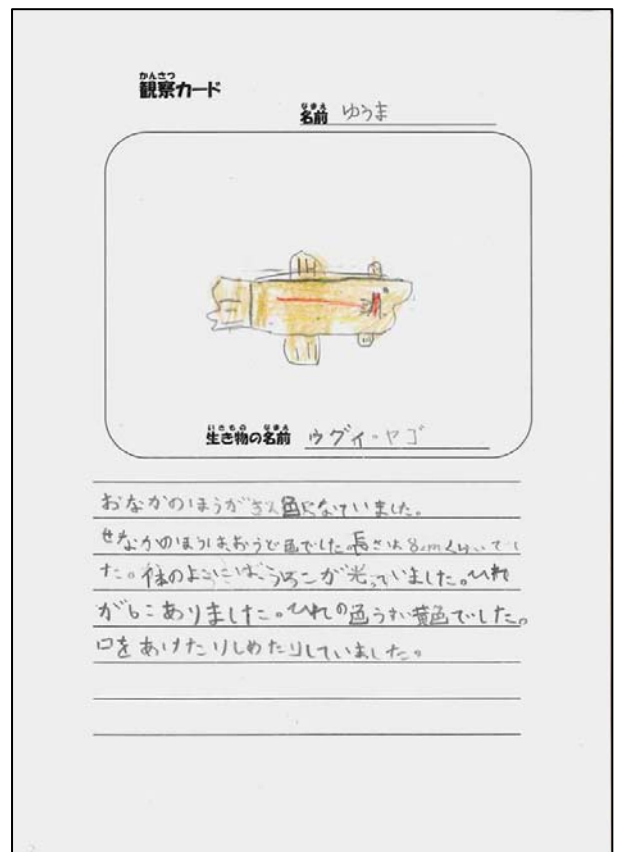 かんさつ
観察カード
なまえ
名前 ゆうま
いきもの なまえ
生き物の名前 ウグイ・ヤゴ
おなかのほうがぎん色になていました。
せなかのほうはおうど色でした。長さは8cmくらいでし
た。体のよこには、うろこが光っていました。ひれ
が6こありました。ひれの色うすい黄色でした。
口をあけたりしめたりしていました。